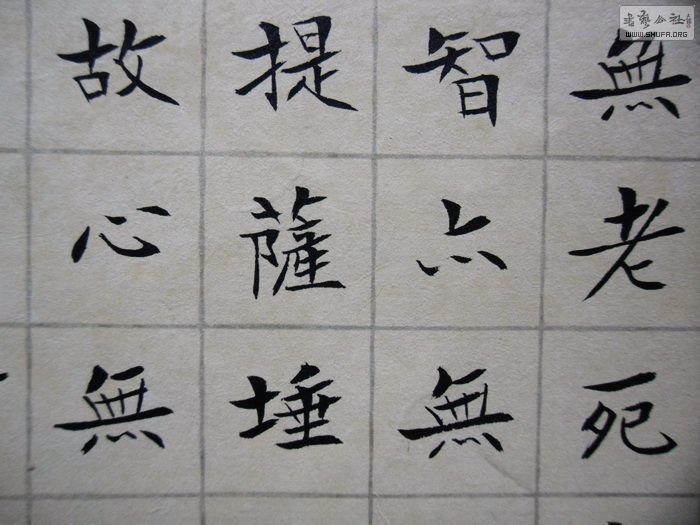 無老死
智亦無
提薩埵
故心無
書藝公社
WWW.SHUFA.ORG